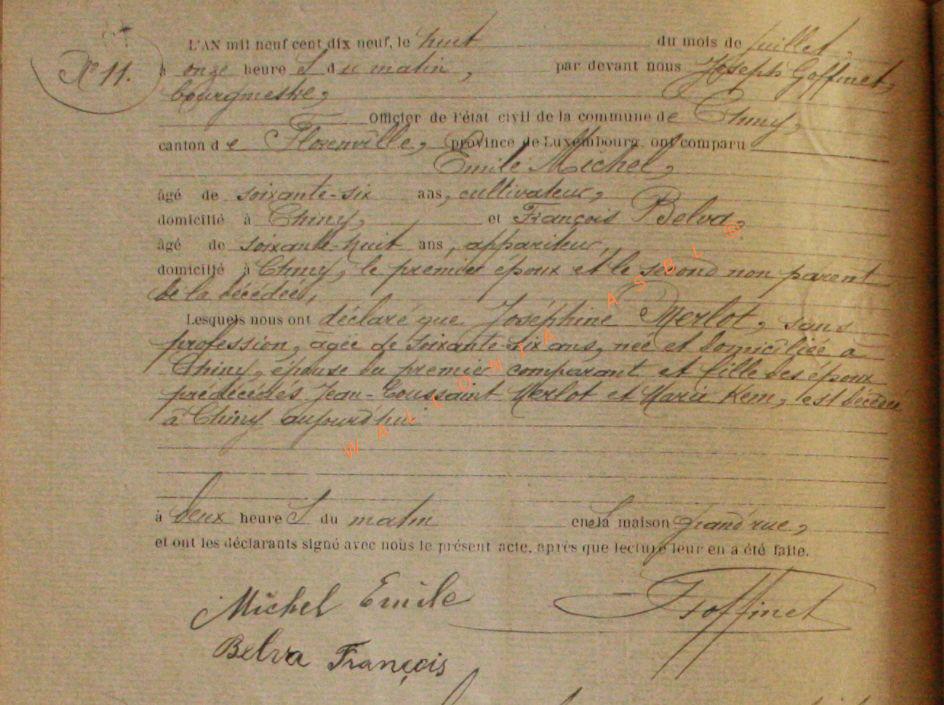 N° 11.
L'AN mil neuf cent dix neuf, le huit du mois de juillet,
à onze heure s du matin, par devant nous Joseph Goffinet,
bourgmestre,
Officier de l'état civil de la commune de Chiny,
canton de Florenville, province de Luxembourg, ont comparu
Emile Michel,
âgé de soixante-six ans, cultivateur,
domicilié à Chiny, et François Belva,
âgé de soixante-huit ans, appariteur,
domicilié à Chiny, le premier époux et le second non parent
de la décédée,
Lesquels nous ont déclaré que Joséphine Merlot, sans
profession, agée de soixante-six ans, née et domiciliée à
Chiny, épouse du premier comparant et fille des époux
prédécédés Jean-Toussaint Merlot et Maria Kem, est décédée
à Chiny aujourd'hui
à deux heure s du matin en la maison grand'rue,
et ont les déclarants signé avec nous le présent acte, après que lecture leur en a été faite.
Michel Emile
J Goffinet
Belva François
WALLONIA ASBL